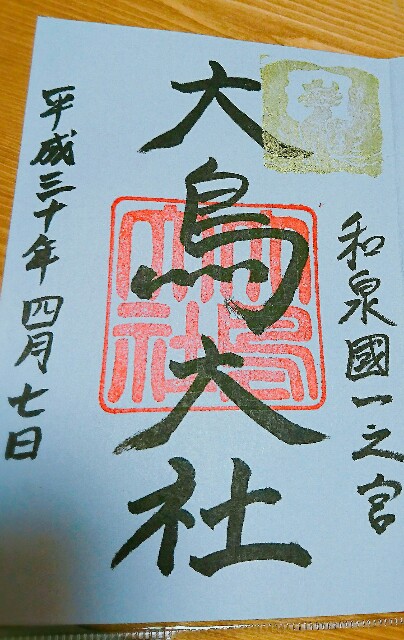 和泉國一之宮
大鳥大社
平成三十年四月七日
大鳥大社